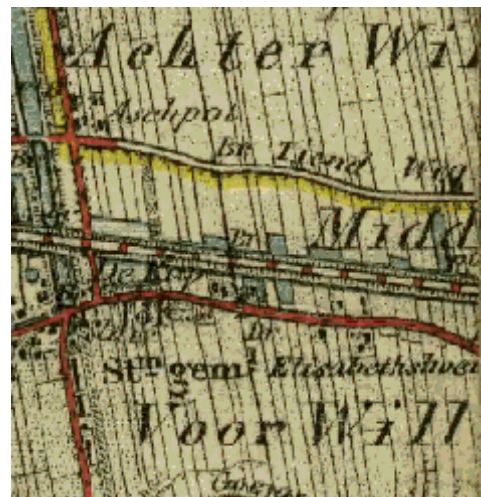 Achter Wil
Aschpot
Br. Tiend Weg
Midd
Br
De Kop
Br
Stm. gem.
Elisabethshoe
Voor Will